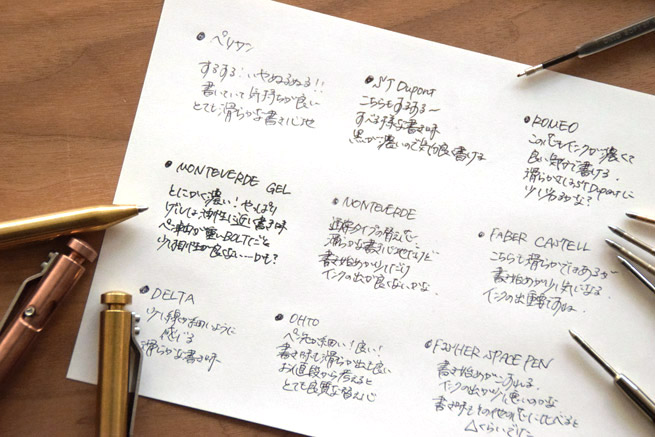 ペリカン
するする…いやぬるぬる!!
書いていて気持ちが良い
とても滑らかな書き心地
ST Dupont
こちらもするする〜
すべる様な書き味
黒が濃いので気持良く書ける
ROMEO
これもインクが濃くて
良い気分で書ける。
滑らかさはST Dupontに
少し劣るかな?
MONTEVERDE GEL
とにかく濃い! やっぱり
ゲルは油性に近い書き味
ペン自体が重いBOLTだと
少し相性が良くない…かも?
MONTEVERDE
通常タイプの替え芯
滑らかな書き心地だけど
書き始めが少しだけ
インクの出が良くないかな。
FABER CASTELL
こちらも滑らかではあるが
書き始めが少し気になる。
インクの出
DELTA
少し線が細いように
感じる
滑らかな書き味
OHTO
ペン先が細い! 良い!
書き味も滑らか 出も良い
お値段から考えると
とても良質な替え芯
FISHER SPACE PEN
書き始めが
インクの出が少し悪いのかな
書き味もその他と比べると
△くらいでした